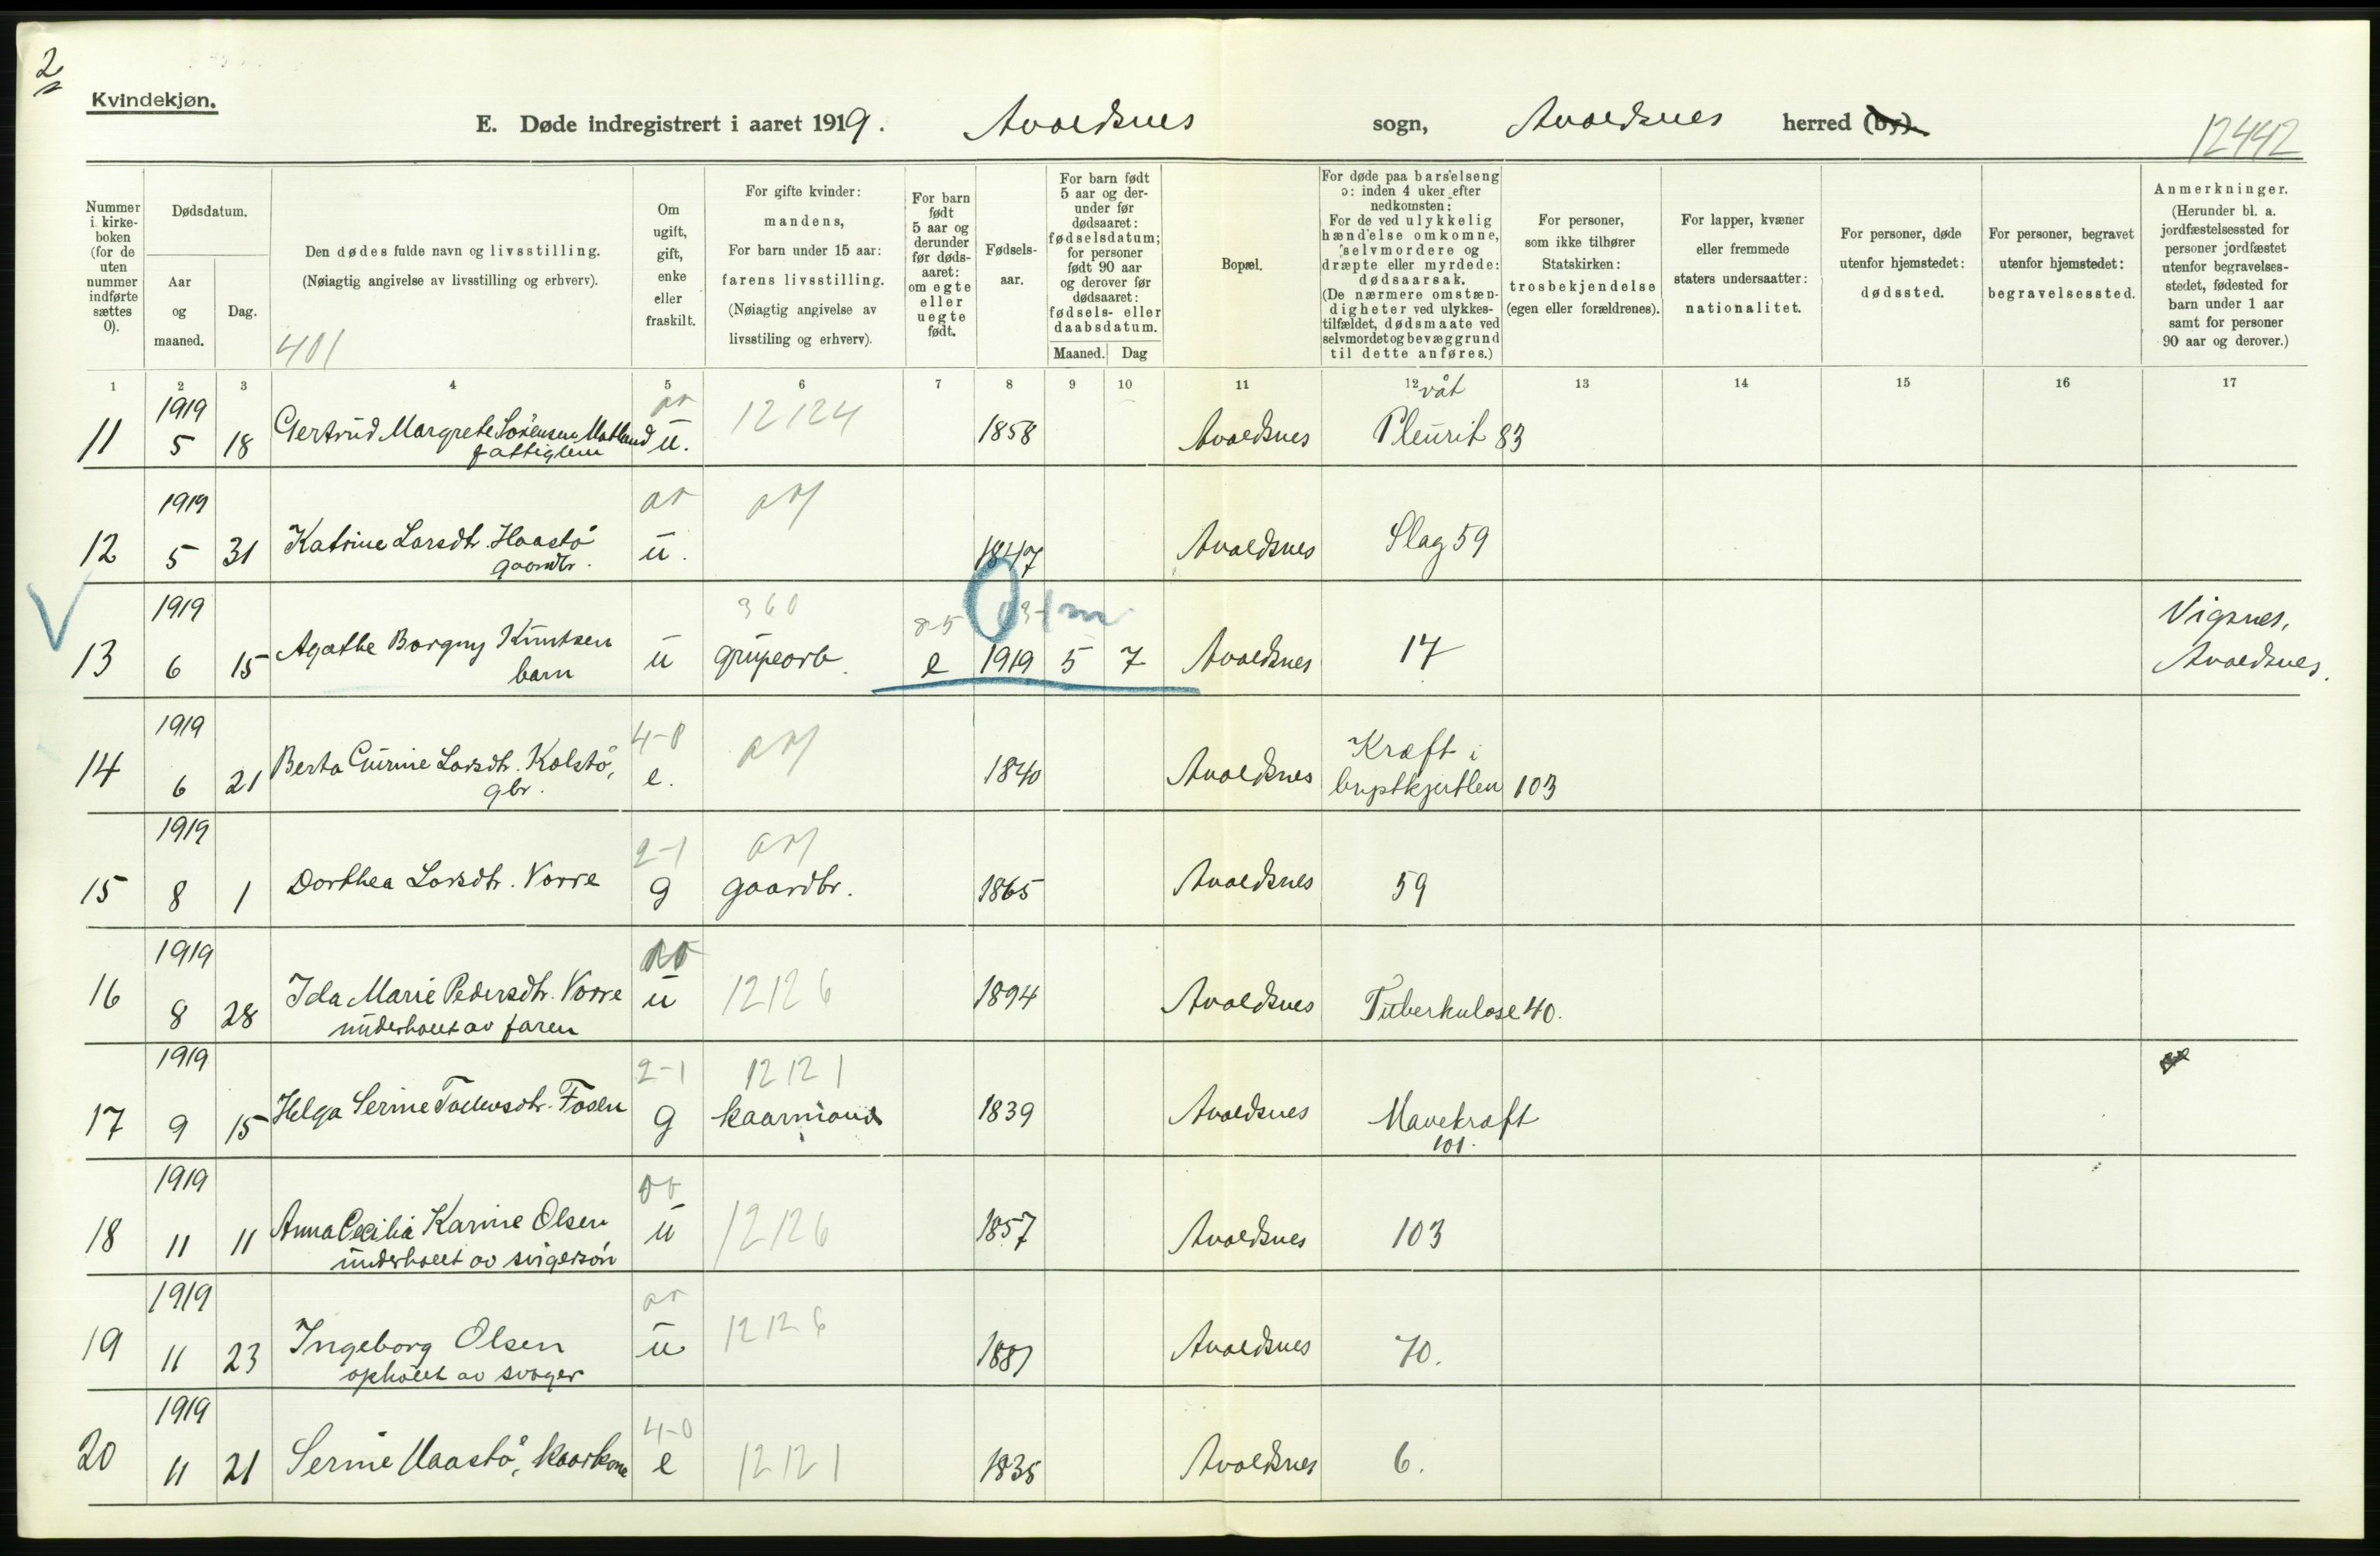 2
Kvindekjøn.
E. Døde indregistrert i aaret 1919. Avaldsnes sogn, Avaldsnes herred (by).
12442
Nummer i kirkeboken (for de uten nummer indførte sættes 0).
Dødsdatum.
Aar og maaned.
Dag.
Den dødes fulde navn og livsstilling.
(Nøiagtig angivelse av livsstilling og erhverv).
401
Om ugift, gift, enke eller fraskilt.
For gifte kvinder: mandens,
For barn under 15 aar: farens livsstilling.
(Nøiagtig angivelse av livsstiling og erhverv).
For barn født 5 aar og derunder før dødsaaret: om egte eller uegte født.
Fødselsaar.
For barn født 5 aar og derunder før dødsaaret: fødselsdatum; for personer født 90 aar og derover før dødsaaret: fødsels- eller daabsdatum.
Maaned. Dag
Bopæl.
For døde paa barselseng ɔ: inden 4 uker efter nedkomsten:
For de ved ulykkelig hændelse omkomne, selvmordere og dræpte eller myrdede: dødsaarsak.
(De nærmere omstændigheter ved ulykkestilfældet, dødsmaate ved selvmordet og bevæggrund til dette anføres.)
For personer, som ikke tilhører Statskirken: trosbekjendelse (egen eller forældrenes).
For lapper, kvæner eller fremmede staters undersaatter: nationalitet.
For personer, døde utenfor hjemstedet: dødssted.
For personer, begravet utenfor hjemstedet: begravelsessted.
Anmerkninger.
(Herunder bl. a. jordfæstelsessted for personer jordfæstet utenfor begravelsesstedet, fødested for barn under 1 aar samt for personer 90 aar og derover.)
1 2 3 4 5 6 7 8 9 10 11 12 13 14 15 16 17
1919 12124 våt
11 5 18 Gertrud Margrete Sørensen Matland u. 1858 Avaldsnes Pleurit 83
fattiglem
1919
12 5 31 Katrine Larsdtr. Haastø u. 1847 Avaldsnes Slag 59
gaardbr.
1919 360 8-5 Vigsnes,
13 6 15 Agathe Borgny Knutsen u grubearb. e 1919 5 7 Avaldsnes 17 Avaldsnes.
barn
1919 4-0 Kræft i
14 6 21 Berta Gurine Larsdtr. Kolstø, e. 1840 Avaldsnes brystkjertlen 103
gbr.
1919 2-1
15 8 1 Dorthea Larsdtr. Vorre g gaardbr. 1865 Avaldsnes 59
1919
16 8 28 Ida Marie Pedersdtr. Vorre u 12126 1894 Avaldsnes Tuberkulose 40.
underholdt av faren
1919 2-1 12121
17 9 15 Helga Serine Fosen g kaarmand 1839 Avaldsnes Mavekræft
101.
1919
18 11 11 Anna Cecilia Karine Olsen u 12126 1857 Avaldsnes 103
underholdt av svigersøn
1919
19 11 23 Ingeborg Olsen u 12126 1887 Avaldsnes 70.
opholdt av svoger
1919 4-0
20 11 21 Serine Haastø, kaarkone e 12121 1835 Avaldsnes 6.